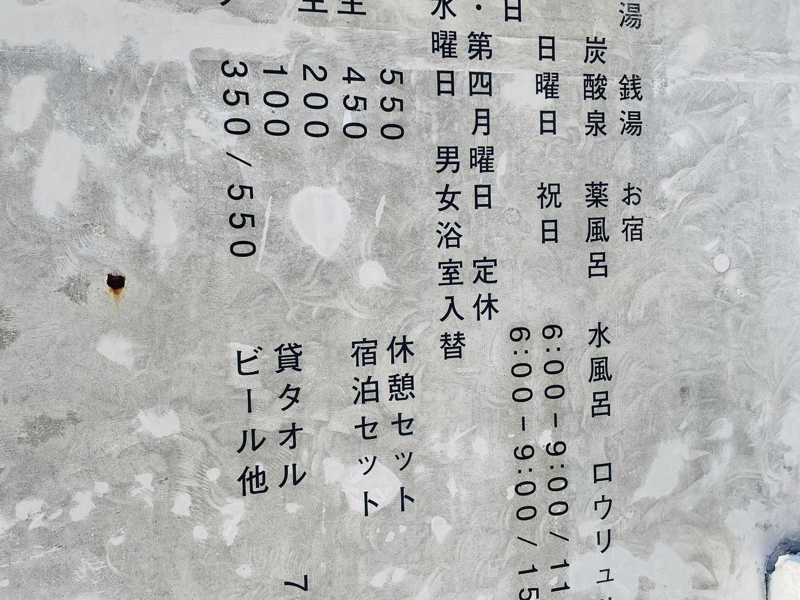 湯 銭湯 お宿
炭酸泉 薬風呂 水風呂 ロウリュ
日曜日 祝日 6:00-9:00/11
日 6:00-9:00/15
・第四月曜日 定休
水曜日 男女浴室入替
550 休憩セット
450 宿泊セット
200
100 貸タオル 7
350/550 ビール他